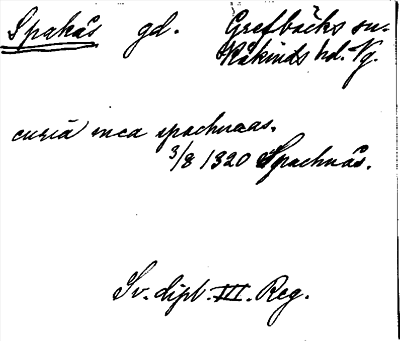 Spakås gd. Grefbäcks sn.
Kåkinds hd. Vg.
curia mea spachuaas.
3/8 1320 Spachuås.
Sv. dipl. III. Reg.